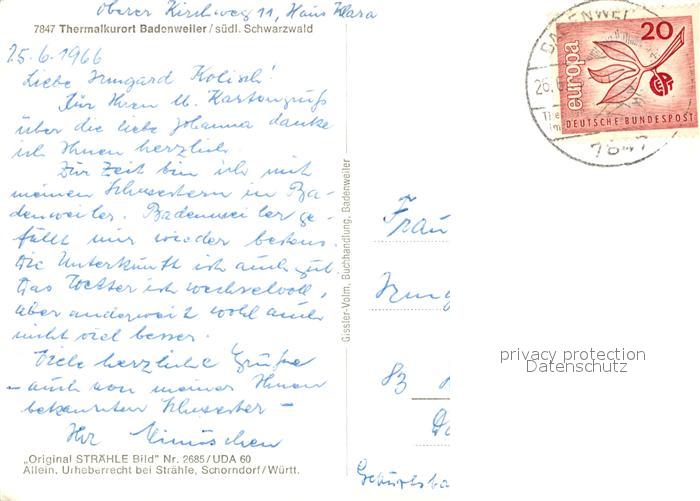 Oberer Kirchweg 11, Haus Klara
7847 Thermalkurort Badenweiler / südl. Schwarzwald
25.6.1966
Liebe Irmgard Kolisch!
Für Ihren lb. Kartengruß
über die liebe Johanna danke
ich Ihnen herzlich.
Zur Zeit bin ich mit
meinen Schwestern in Ba-
denweiler. Badenweiler ge-
fällt mir wieder bestens.
Die Unterkunft ist auch gut.
Das Wetter ist wechselvoll,
aber anderweit wohl auch
nicht viel besser.
Viele herzliche Grüße
– auch von meiner Ihnen
bekannten Schwester –
Ihr
„Original STRÄHLE Bild" Nr. 2685/UDA 60
Allein. Urheberrecht bei Strähle, Schorndorf/Württ.
Gissler-Volm, Buchhandlung, Badenweiler
BADENWEI
26.6
7847
europa
20
DEUTSCHE BUNDESPOST
Frau
Irmg
83
Geburtsba
privacy protection
Datenschutz